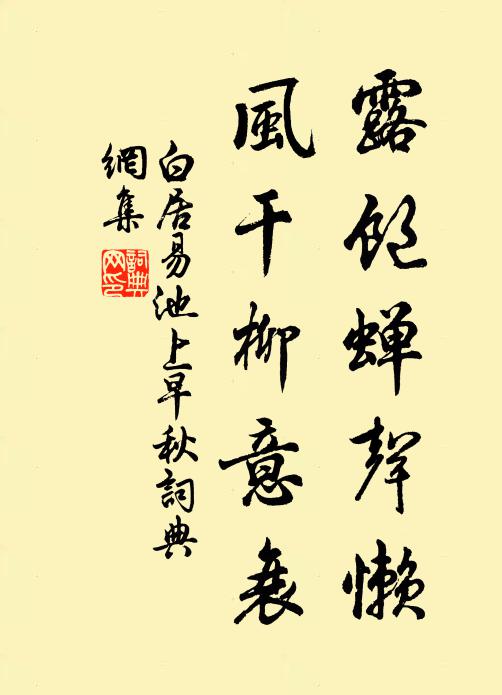 露飽蟬聲懶
風干柳意衰
白居易池上早秋詞典
網集
詞典
网印